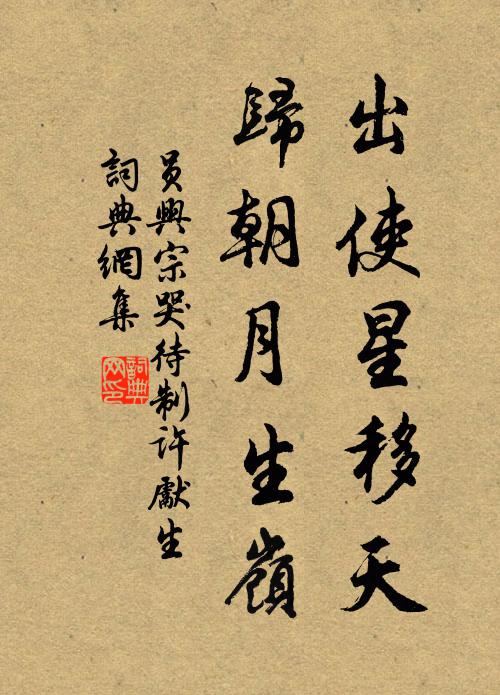 出使星移天
歸朝月生嶺
员興宗哭待制許獻生
詞典網集
詞典
网印